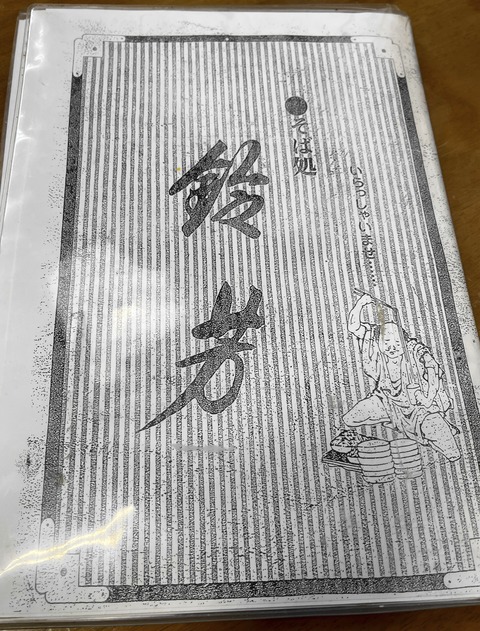 ●そば処
いらっしゃいませ……
鈴芳